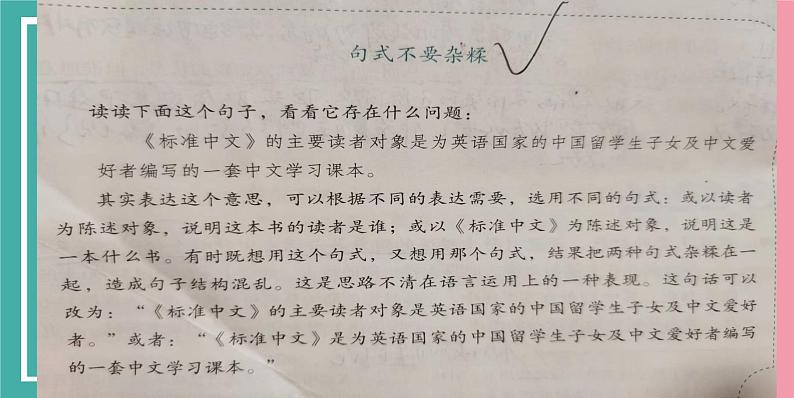 句式不要杂糅
读读下面这个句子，看看它存在什么问题：
《标准中文》的主要读者对象是为英语国家的中国留学生子女及中文爱
好者编写的一套中文学习课本。
其实表达这个意思，可以根据不同的表达需要，选用不同的句式：或以读者
为陈述对象，说明这本书的读者是谁；或以《标准中文》为陈述对象，说明这是
一本什么书。有时既想用这个句式，又想用那个句式，结果把两种句式杂糅在一
起，造成句子结构混乱。这是思路不清在语言运用上的一种表现。这句话可以
改为：“《标准中文》的主要读者对象是英语国家的中国留学生子女及中文爱好
者。”或者：“《标准中文》是为英语国家的中国留学生子女及中文爱好者编写
的一套中文学习课本。”